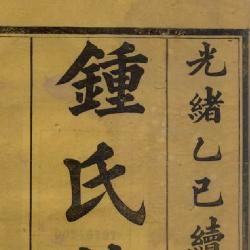 光緒乙巳續
鍾氏